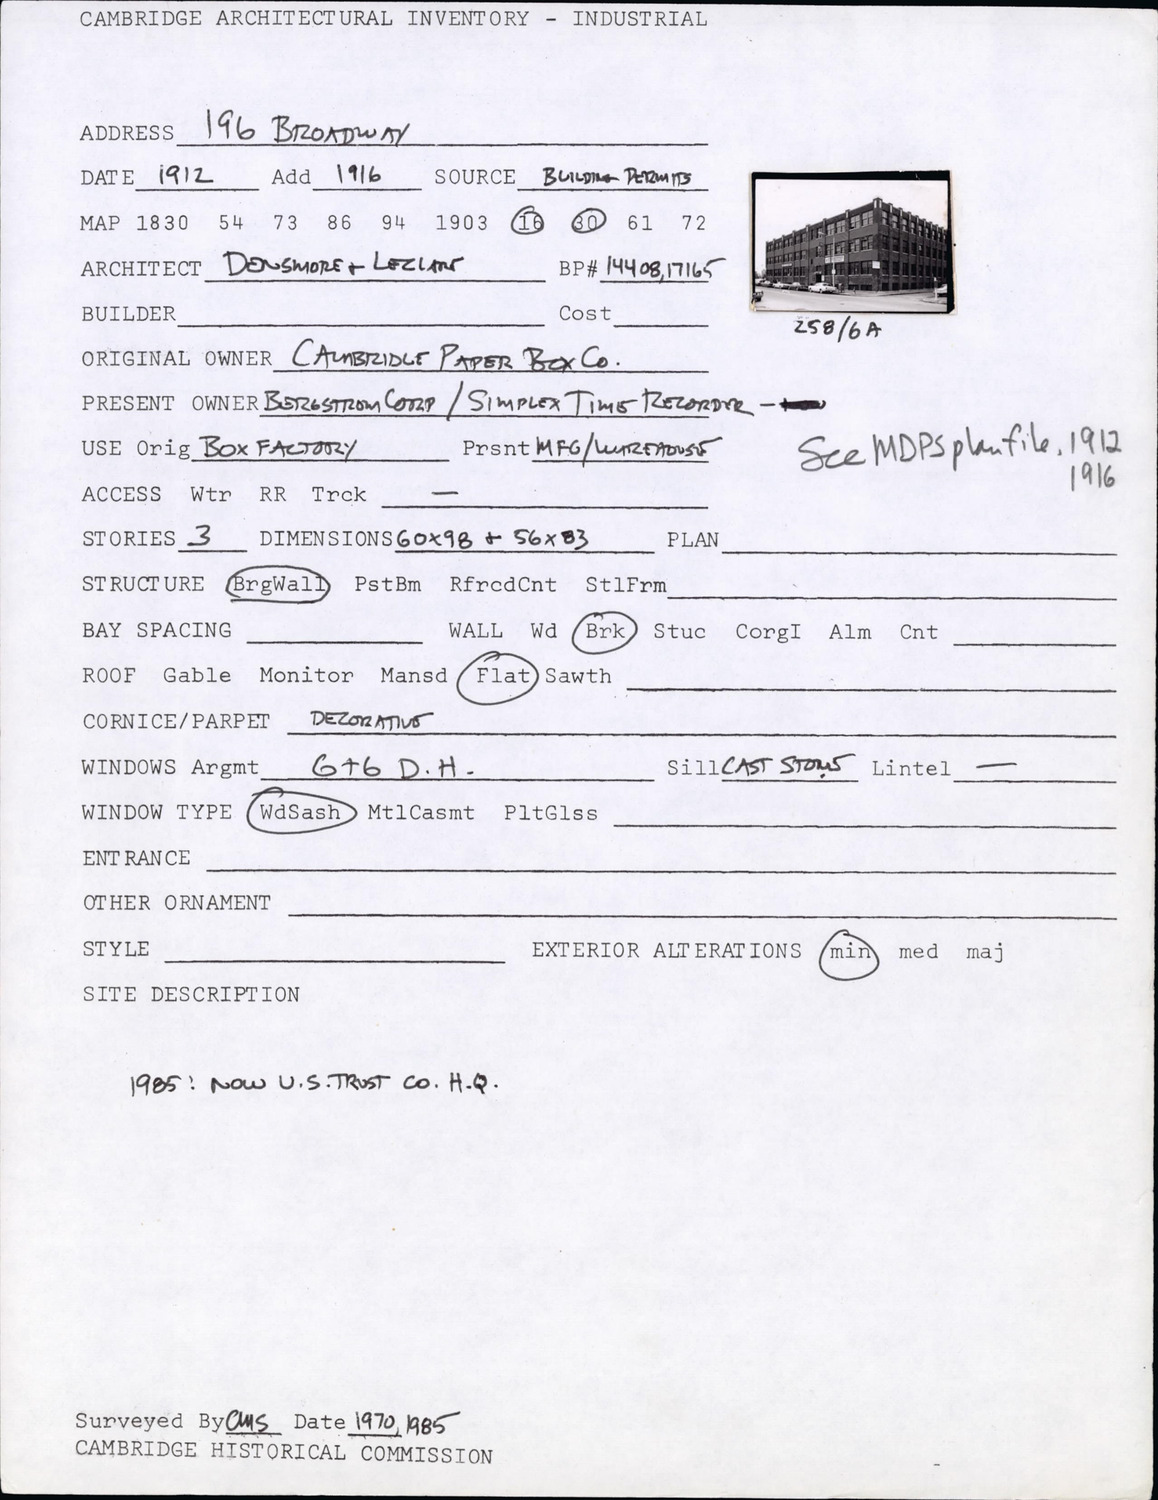 CAMBRIDGE ARCHITECTURAL INVENTORY - INDUSTRIAL
ADDRESS 196 BROADWAY
DATE 1912 Add 1916 SOURCE BUILDING PERMITS
MAP 1830 54 73 86 94 1903 16 30 61 72
ARCHITECT DENSMORE + LECLEAR BP# 14408, 17165
BUILDER Cost
258/6A
ORIGINAL OWNER CAMBRIDGE PAPER BOX CO.
PRESENT OWNER BERGSTROM CORP / SIMPLEX TIME RECORDER -
USE Orig BOX FACTORY Prsnt MFG/WAREHOUSE
See MDPS plan file, 1912
1916
ACCESS Wtr RR Trck —
STORIES 3 DIMENSIONS 60x98 + 56x83 PLAN
STRUCTURE BrgWall PstBm RfrcdCnt StlFrm
BAY SPACING WALL Wd Brk Stuc CorgI Alm Cnt
ROOF Gable Monitor Mansd Flat Sawth
CORNICE/PARPET DECORATIVE
WINDOWS Argmt 6+6 D.H. Sill CAST STONE Lintel —
WINDOW TYPE WdSash MtlCasmt PltGlss
ENTRANCE
OTHER ORNAMENT
STYLE EXTERIOR ALTERATIONS min med maj
SITE DESCRIPTION
1985: NOW U.S. TRUST CO. H.Q.
Surveyed By CMS Date 1970, 1985
CAMBRIDGE HISTORICAL COMMISSION